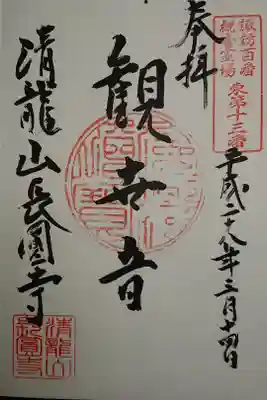 奉拝
諏訪百番
観音霊場
東第十三番
平成二十八年三月十四日
観世音
清龍山長圓寺
清龍山
長圓寺